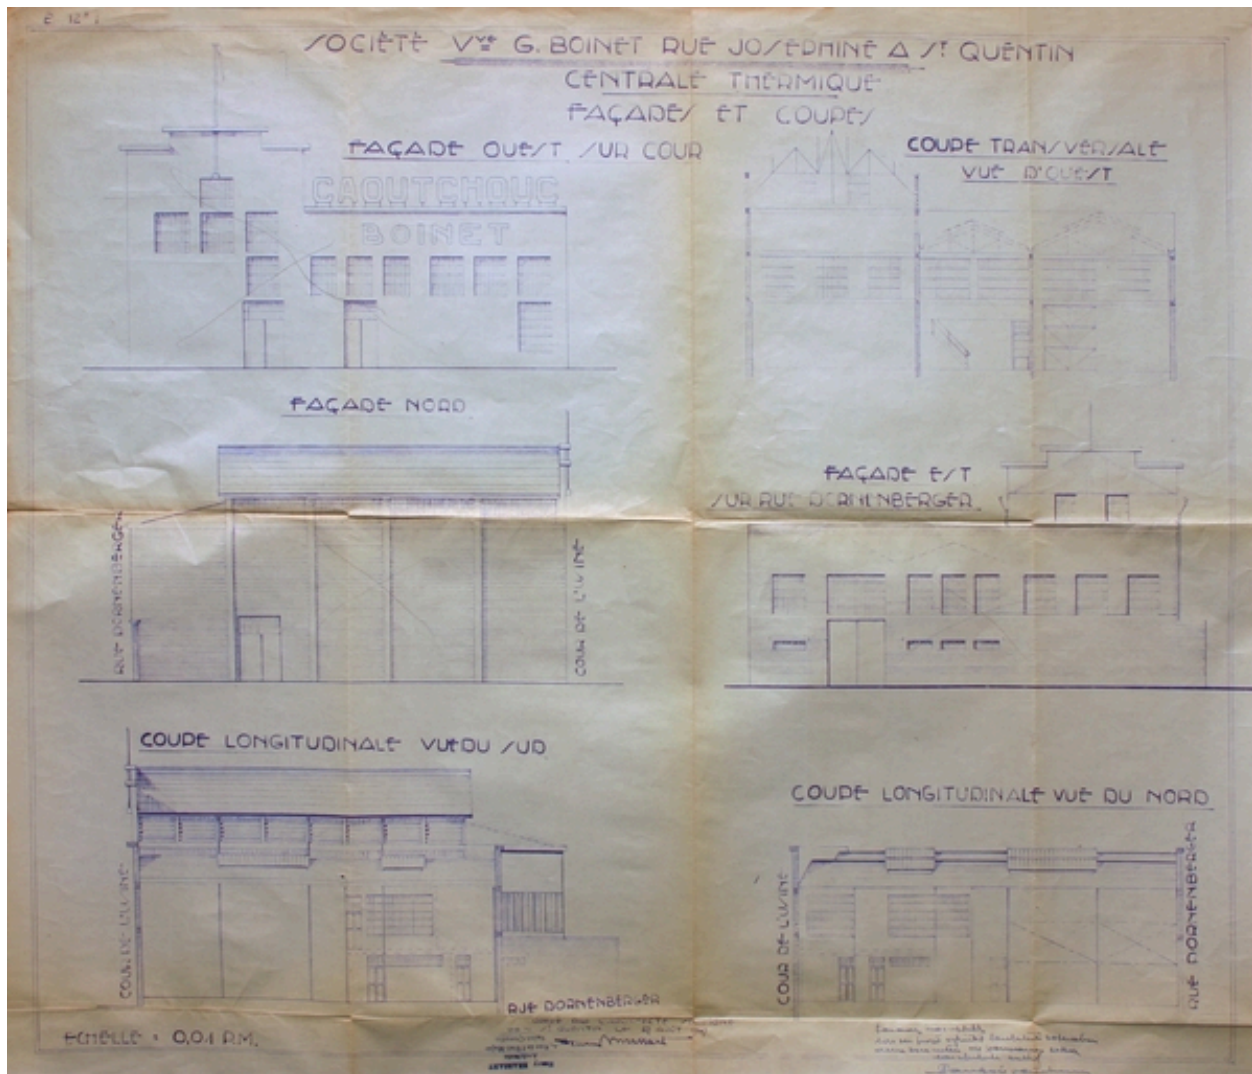 SOCIÉTÉ Vve G. BOINET RUE JOSEPHINE A St QUENTIN
CENTRALE THERMIQUE
FAÇADES ET COUPES
FAÇADE OUEST SUR COUR
CAOUTCHOUC
BOINET
COUPE TRANSVERSALE
VUE D'OUEST
FAÇADE NORD
RUE DORNENBERGER
COUR DE L'USINE
FAÇADE EST
SUR RUE DORNENBERGER
COUPE LONGITUDINALE VUE DU SUD
COUR DE L'USINE
RUE DORNENBERGER
COUPE LONGITUDINALE VUE DU NORD
COUR DE L'USINE
RUE DORNENBERGER
ECHELLE : 0,01 P.M.